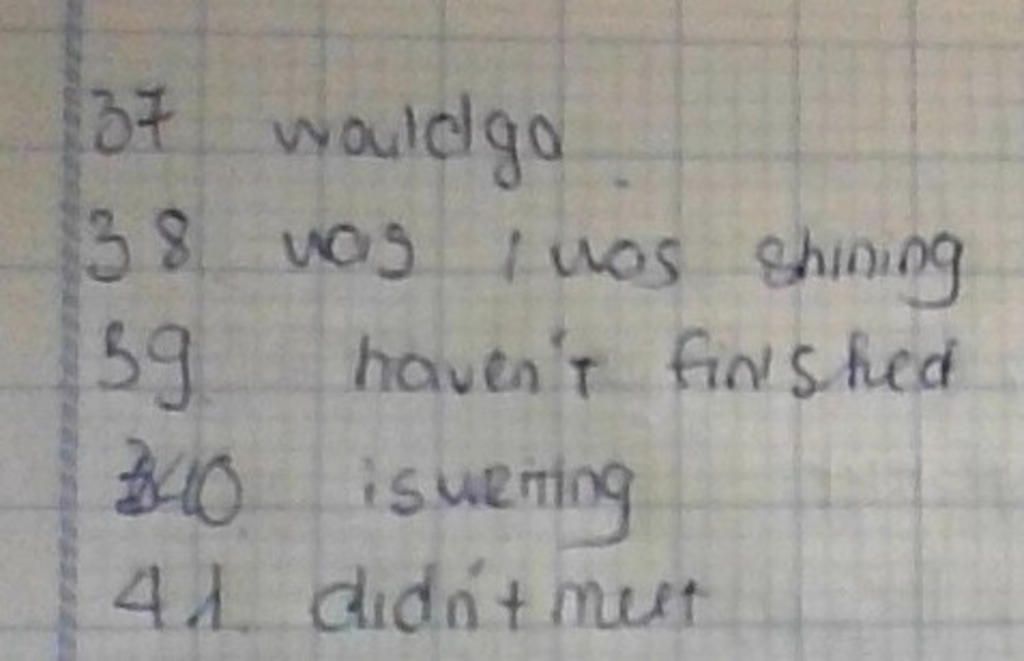 37 would go
38 was / was shining
39 haven't finished
40 is writing
41 didn't meet